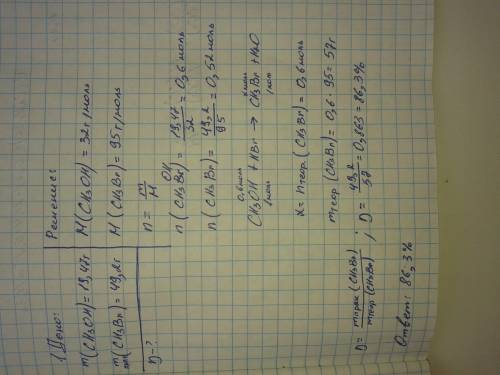 1 Дано:
m(CH3OH) = 19,47г
mпр(CH3Br) = 49,2г
D-?
Решение:
M(CH3OH) = 32г/моль
M(CH3Br) = 95г/моль
n = m/M
n(CH3OH) = 19,47/32 = 0,6 моль
n(CH3Br) = 49,2/95 = 0,52 моль
0,6моль xмоль
CH3OH + HBr → CH3Br + H2O
1моль 1моль
x = nтеор.(CH3Br) = 0,6 моль
mтеор(CH3Br) = 0,6 · 95 = 57г
D = mпрак(CH3Br)/mтеор(CH3Br) ; D = 49,2/57 = 0,863 = 86,3%
Ответ: 86,3%